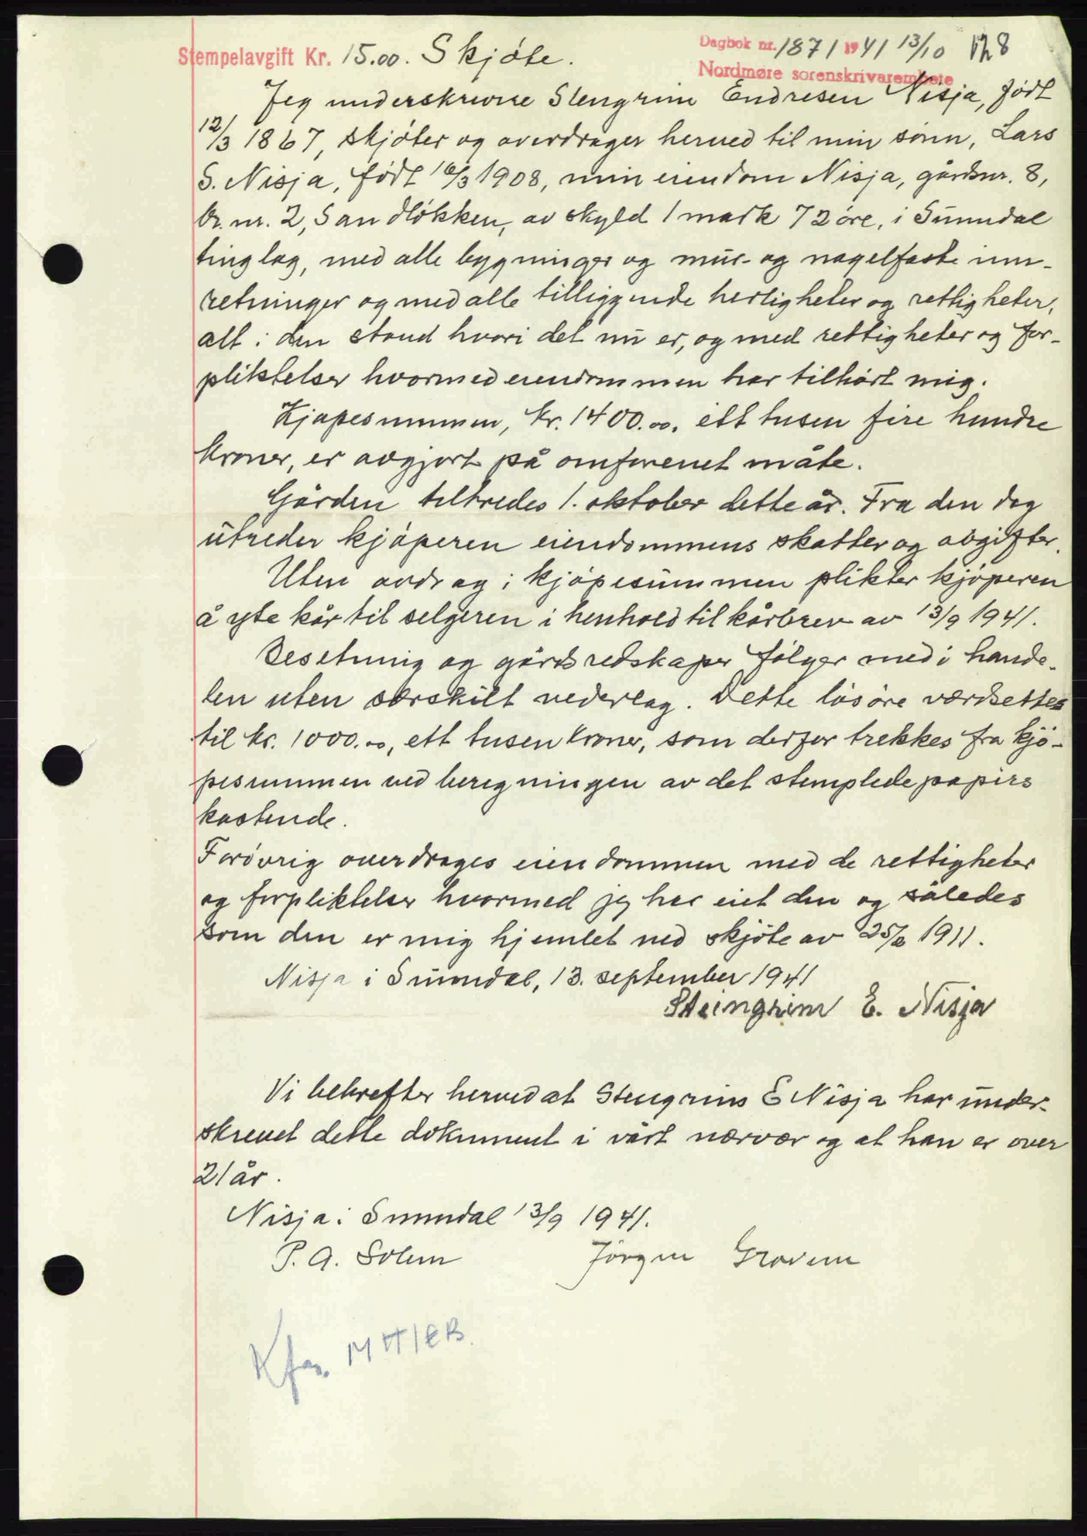 Stempelavgift Kr. 15.00. Skjøte.
Dagbok nr. 1871 1941 13/10 128
Nordmøre sorenskrivarembete
Jeg underskrevne Stengrim Endresen Nisja, født
12/3 1867, skjøter og overdrager herved til min sønn, Lars
S. Nisja, født 16/3 1908, min eiendom Nisja, gårdsnr. 8,
br. nr. 2, Sandløkken, av skyld 1 mark 72 øre, i Sunndal
tinglag, med alle bygninger og mur- og nagelfaste inn-
retninger og med alle tilliggende herligheter og rettigheter,
alt i den stand hvori det nu er, og med rettigheter og for-
pliktelser hvormed eiendommen har tilhørt mig.
Kjøpesummen, kr. 1400.00, ett tusen fire hundre
kroner, er avgjort på omforenet måte.
Gården tiltredes 1. oktober dette år. Fra den dag
utreder kjøperen eiendommens skatter og avgifter.
Uten avdrag i kjøpesummen plikter kjøperen
å yte kår til selgeren i henhold til kårbrev av 13/9 1941.
Besetning og gårdsredskaper følger med i hande-
len uten særskilt vederlag. Dette løsøre værdsettes
til kr. 1000.00, ett tusen kroner, som derfor trekkes fra kjø-
pesummen ved beregningen av det stemplede papirs
kostende.
Forøvrig overdrages eiendommen med de rettigheter
og forpliktelser hvormed jeg har eiet den og således
som den er mig hjemlet ved skjøte av 25/2 1911.
Nisja i Sunndal, 13. september 1941
Steingrim E. Nisja
Vi bekrefter herved at Stengrim E Nisja har under-
skrevet dette dokument i vårt nærvær og at han er over
21 år.
Nisja i Sunndal 13/9 1941.
P. A. Solem Jørgen Grovem
Kfr.